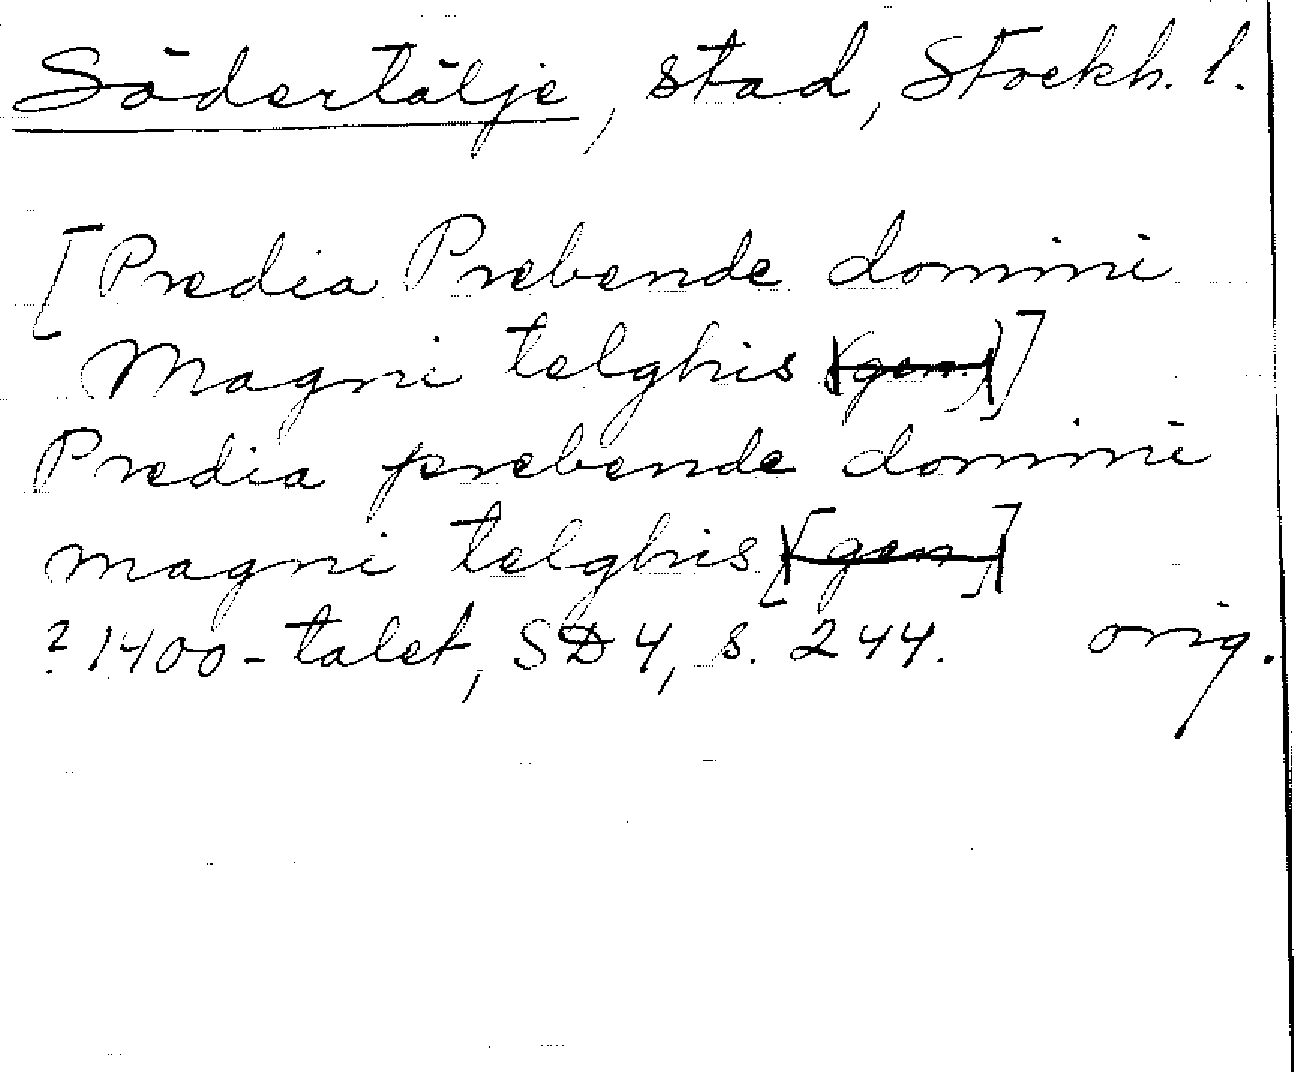 Södertälje, stad, Stockh. l.
[Predia Prebende domini
Magni telghis (gen.)]
Predia prebende domini
magni telghis [gen]
? 1400-talet, SD 4, s. 244. orig.